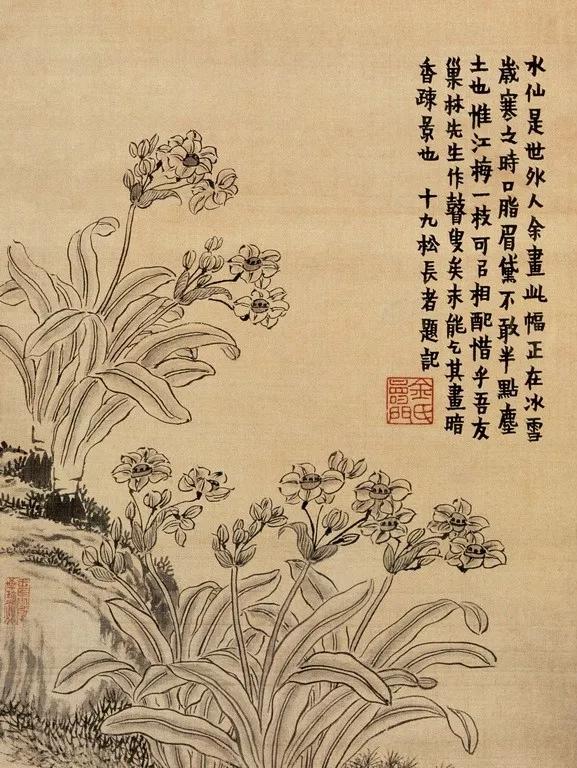 水仙是世外人余畫此幅正在冰雪
歲寒之時口脂眉黛不敢半點塵
土也惟江梅一枝可㠯相配惜乎吾友
巢林先生作瞽叟矣未能乞其畫暗
香疎景也 十九松長者題記
金氏壽門